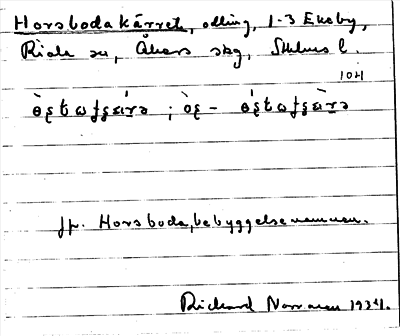 Horsbodakärret, odling, 1-3 Ekeby,
Riala sn, Åkers skg, Sthlms l.
104
jfr. Horsboda, bebyggelsenamnen.
Rickard Norrman 1934.